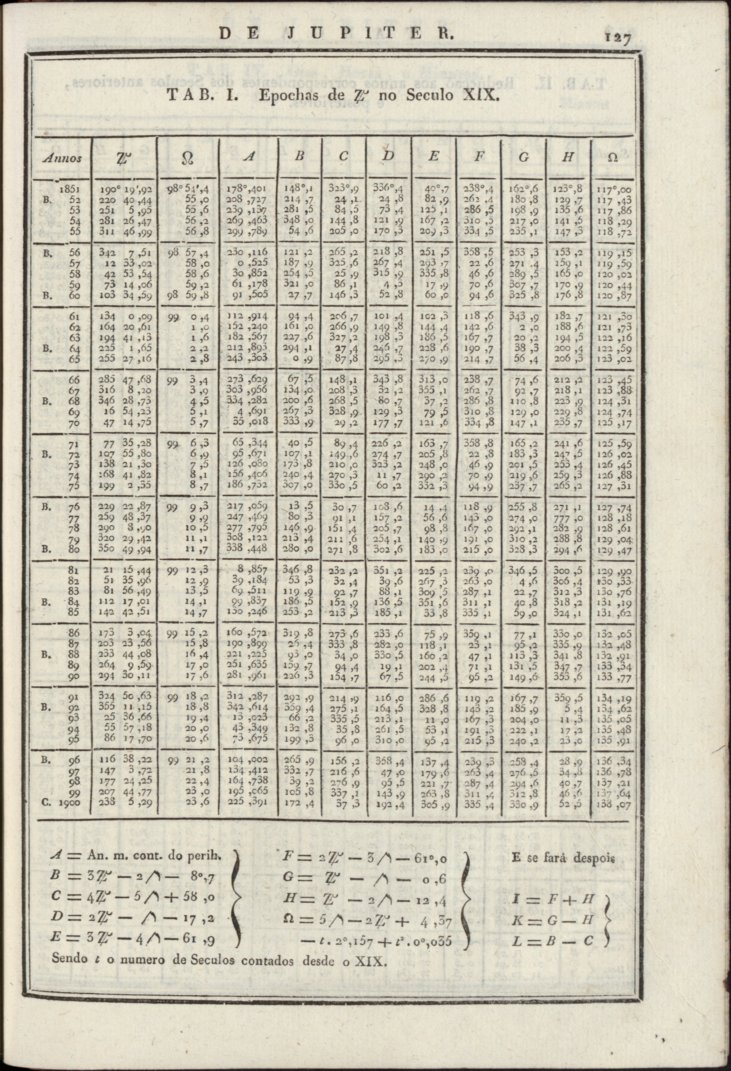 DE JUPITER. 127
TAB. I. Epochas de ♃ no Seculo XIX.
Annos ♃ ☊ A B C D E F G H Ω
1851 190° 19′,92 98° 54′,4 178°,401 148°,1 323°,9 336°,4 40°,7 238°,4 162°,6 123°,8 117°,00
B. 52 220 40,44 55,0 208,727 214,7 24,1 24,8 82,9 262,4 180,8 129,7 117,43
53 251 5,95 55,6 239,137 281,5 84,5 73,4 125,1 286,5 198,9 135,6 117,86
54 281 26,47 56,2 269,463 348,0 144,8 121,9 167,2 310,5 217,0 141,5 118,29
55 311 46,99 56,8 299,789 54,6 205,0 170,3 209,3 334,5 235,1 147,3 118,72
B. 56 342 7,51 98 57,4 230,116 121,2 265,2 218,8 251,5 358,5 253,3 153,2 119,15
57 12 33,02 58,0 0,525 187,9 325,6 267,4 293,7 22,6 271,4 159,1 119,59
58 42 53,54 58,6 30,852 254,5 25,9 315,9 335,8 46,6 289,5 165,0 120,02
59 73 14,06 59,2 61,178 321,0 86,1 4,3 17,9 70,6 307,7 170,9 120,44
B. 60 103 34,59 98 59,8 91,505 27,7 146,3 52,8 60,0 94,6 325,8 176,8 120,87
61 134 0,09 99 0,4 112,914 94,4 206,7 101,4 102,3 118,6 343,9 182,7 121,30
62 164 20,61 1,0 152,240 161,0 266,9 149,8 144,4 142,6 2,0 188,6 121,73
63 194 41,13 1,6 182,567 227,6 327,2 198,3 186,5 167,7 20,2 194,5 122,16
B. 64 225 1,65 2,2 212,893 294,1 27,4 246,7 228,6 190,7 38,3 200,4 122,59
65 255 27,16 2,8 243,303 0,9 87,8 295,3 270,9 214,7 56,4 206,3 123,02
66 285 47,68 99 3,4 273,629 67,5 148,1 343,8 313,0 238,7 74,6 212,2 123,45
67 316 8,20 3,9 303,956 134,0 208,3 32,2 355,1 262,7 92,7 218,1 123,88
B. 68 346 28,73 4,5 334,282 200,6 268,5 80,7 37,2 286,8 110,8 223,9 124,31
69 16 54,23 5,1 4,691 267,3 328,9 129,3 79,5 310,8 129,0 229,8 124,74
70 47 14,75 5,7 35,018 333,9 29,2 177,7 121,6 334,8 147,1 235,7 125,17
71 77 35,28 99 6,3 65,344 40,5 89,4 226,2 163,7 358,8 165,2 241,6 125,59
B. 72 107 55,80 6,9 95,671 107,1 149,6 274,7 205,8 22,8 183,3 247,5 126,02
73 138 21,30 7,5 126,080 173,8 210,0 323,2 248,0 46,9 201,5 253,4 126,45
74 168 41,82 8,1 156,406 240,4 270,3 11,7 290,2 70,9 219,6 259,3 126,88
75 199 2,35 8,7 186,732 307,0 330,5 60,2 332,3 94,9 237,7 265,2 127,31
B. 76 229 22,87 99 9,3 217,059 13,5 30,7 108,6 14,4 118,9 255,8 271,1 127,74
77 259 48,37 9,9 247,469 80,3 91,1 157,2 56,6 143,0 274,0 777,0 128,18
78 290 8,90 10,5 277,795 146,9 151,4 205,7 98,8 167,0 292,1 282,9 128,61
79 320 29,42 11,1 308,122 213,4 211,6 254,1 140,9 191,0 310,2 288,8 129,04
B. 80 350 49,94 11,7 338,448 280,0 271,8 302,6 183,0 215,0 328,3 294,6 129,47
81 21 15,44 99 12,3 8,857 346,8 232,2 351,2 225,2 239,0 346,5 300,5 129,90
82 51 35,96 12,9 39,184 53,3 32,4 39,6 267,3 263,0 4,6 306,4 130,33
83 81 56,49 13,5 69,511 119,9 92,7 88,1 309,5 287,1 22,7 312,3 130,76
B. 84 112 17,01 14,1 99,837 186,5 152,9 136,5 351,6 311,1 40,8 318,2 131,19
85 142 42,51 14,7 130,246 253,2 213,3 185,1 33,8 335,1 59,0 324,1 131,62
86 173 3,04 99 15,2 160,572 319,8 273,6 233,6 75,9 359,1 77,1 330,0 132,05
87 203 23,56 15,8 190,899 26,4 333,8 282,0 118,1 23,1 95,2 335,9 132,48
B. 88 233 44,08 16,4 221,225 93,0 34,0 330,5 160,2 47,1 113,3 341,8 132,91
89 264 9,59 17,0 251,635 159,7 94,4 19,1 202,4 71,1 131,5 347,7 133,34
90 294 30,11 17,6 281,961 226,3 154,7 67,5 244,5 95,2 149,6 353,6 133,77
91 324 50,63 99 18,2 312,287 292,9 214,9 116,0 286,6 119,2 167,7 359,5 134,19
B. 92 355 11,15 18,8 342,614 359,4 275,1 164,5 328,8 143,2 185,9 5,4 134,62
93 25 36,66 19,4 13,023 66,2 335,5 213,1 11,0 167,3 204,0 11,3 135,05
94 55 57,18 20,0 43,349 132,8 35,8 261,5 53,1 191,3 222,1 17,2 135,48
95 86 17,70 20,6 73,675 199,3 96,0 310,0 95,2 215,3 240,2 23,0 135,91
B. 96 116 38,22 99 21,2 104,002 265,9 156,2 358,4 137,4 239,3 258,4 28,9 136,34
97 147 3,72 21,8 134,412 332,7 216,6 47,0 179,6 263,4 276,5 34,8 136,78
98 177 24,25 22,4 164,738 39,2 276,9 95,5 221,7 287,4 294,6 40,7 137,21
99 207 44,77 23,0 195,065 105,8 337,1 143,9 263,8 311,4 312,8 46,6 137,64
C. 1900 238 5,29 23,6 225,391 172,4 37,3 192,4 305,9 335,4 330,9 52,5 138,07
A = An. m. cont. do perih. F = 2♃ − 3♄ − 61°,0 E se fará despois
B = 3♃ − 2♄ − 80°,7 G = ♃ − ♄ − 0,6
C = 4♃ − 5♄ + 58,0 H = ♃ − 2♄ − 12,4 I = F + H
D = 2♃ − ♄ − 17,2 Ω = 5♄ − 2♃ + 4,37 K = G − H
E = 3♃ − 4♄ − 61,9 − t. 2°,157 + t². 0°,035 L = B − C
Sendo t o numero de Seculos contados desde o XIX.